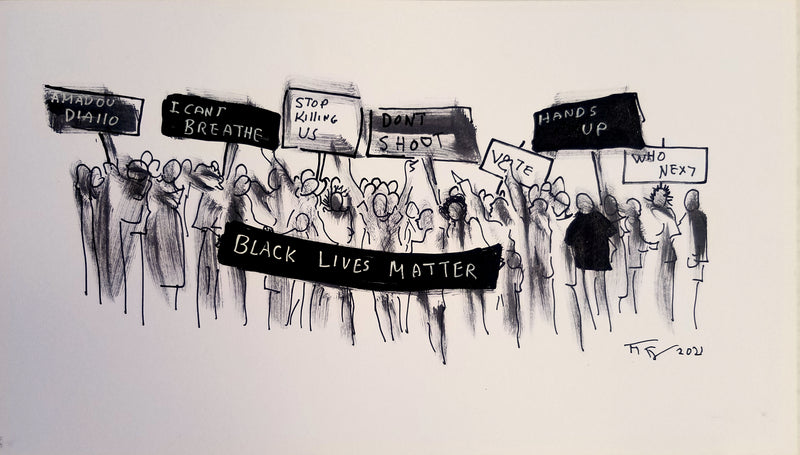 AMADOU
DIAllO
I CANT
BREATHE
STOP
KillING
US
DONT
SHOOT
VOTE
HANDS
UP
WHO
NEXT
BLACK LIVES MATTER
2021